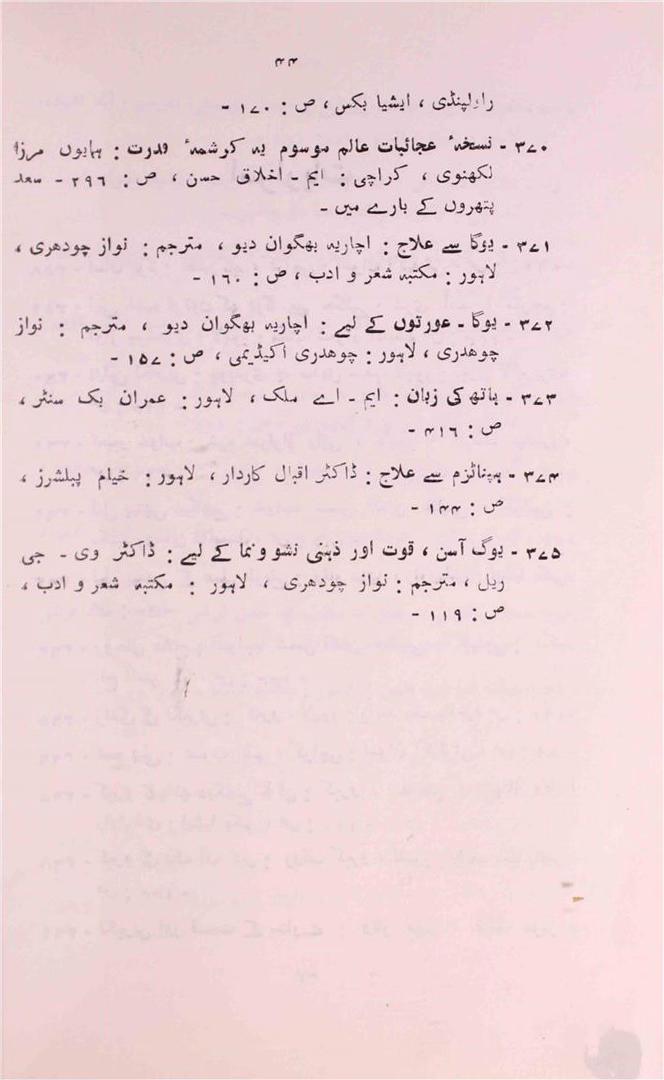 ۴۴
راولپنڈی ، ایشیا بکس ، ص : ۱۷۰ -
۳۷۰ - نسخہٴ عجائبات عالم موسوم بہ کرشمہٴ قدرت : ہمایوں مرزا
لکھنوی ، کراچی : ایم - اخلاق حسن ، ص : ۲۹۶ - سعد
پتھروں کے بارے میں -
۳۷۱ - یوگا سے علاج : اچاریہ بھگوان دیو ، مترجم : نواز چودھری ،
لاہور : مکتبہ شعر و ادب ، ص : ۱۶۰ -
۳۷۲ - یوگا - عورتوں کے لیے : اچاریہ بھگوان دیو ، مترجم : نواز
چوھدری ، لاہور : چوھدری اکیڈیمی ، ص : ۱۵۷ -
۳۷۳ - ہاتھ کی زبان : ایم - اے ملک ، لاہور : عمران بک سنٹر ،
ص : ۴۱۶ -
۳۷۴ - ہپناٹزم سے علاج : ڈاکٹر اقبال کاردار ، لاہور : خیام پبلشرز ،
ص : ۱۴۴ -
۳۷۵ - یوگ آسن ، قوت اور ذہنی نشو و نما کے لیے : ڈاکٹر وی - جی
ریل ، مترجم : نواز چودھری ، لاہور : مکتبہ شعر و ادب ،
ص : ۱۱۹ -